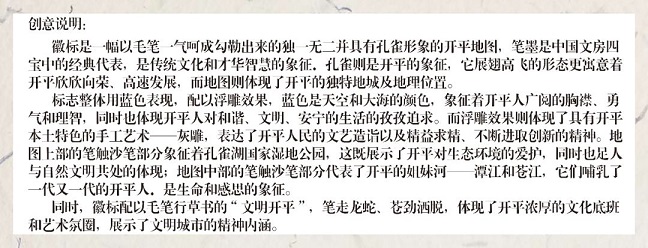 创意说明:
徽标是一幅以毛笔一气呵成勾勒出来的独一无二并具有孔雀形象的开平地图，笔墨是中国文房四
宝中的经典代表，是传统文化和才华智慧的象征。孔雀则是开平的象征，它展翅高飞的形态更寓意着
开平欣欣向荣、高速发展，而地图则体现了开平的独特地域及地理位置。
标志整体用蓝色表现，配以浮雕效果，蓝色是天空和大海的颜色，象征着开平人广阔的胸襟、勇
气和理智，同时也体现开平人对和谐、文明、安宁的生活的孜孜追求。而浮雕效果则体现了具有开平
本土特色的手工艺术——灰雕，表达了开平人民的文艺造诣以及精益求精、不断进取创新的精神。地
图上部的笔触沙笔部分象征着孔雀湖国家湿地公园，这既展示了开平对生态环境的爱护，同时也是人
与自然文明共处的体现；地图中部的笔触沙笔部分代表了开平的姐妹河——潭江和苍江，它们哺乳了
一代又一代的开平人。是生命和感思的象征。
同时，徽标配以毛笔行草书的“文明开平”，笔走龙蛇、苍劲洒脱，体现了开平浓厚的文化底班
和艺术氛圈，展示了文明城市的精神内涵。